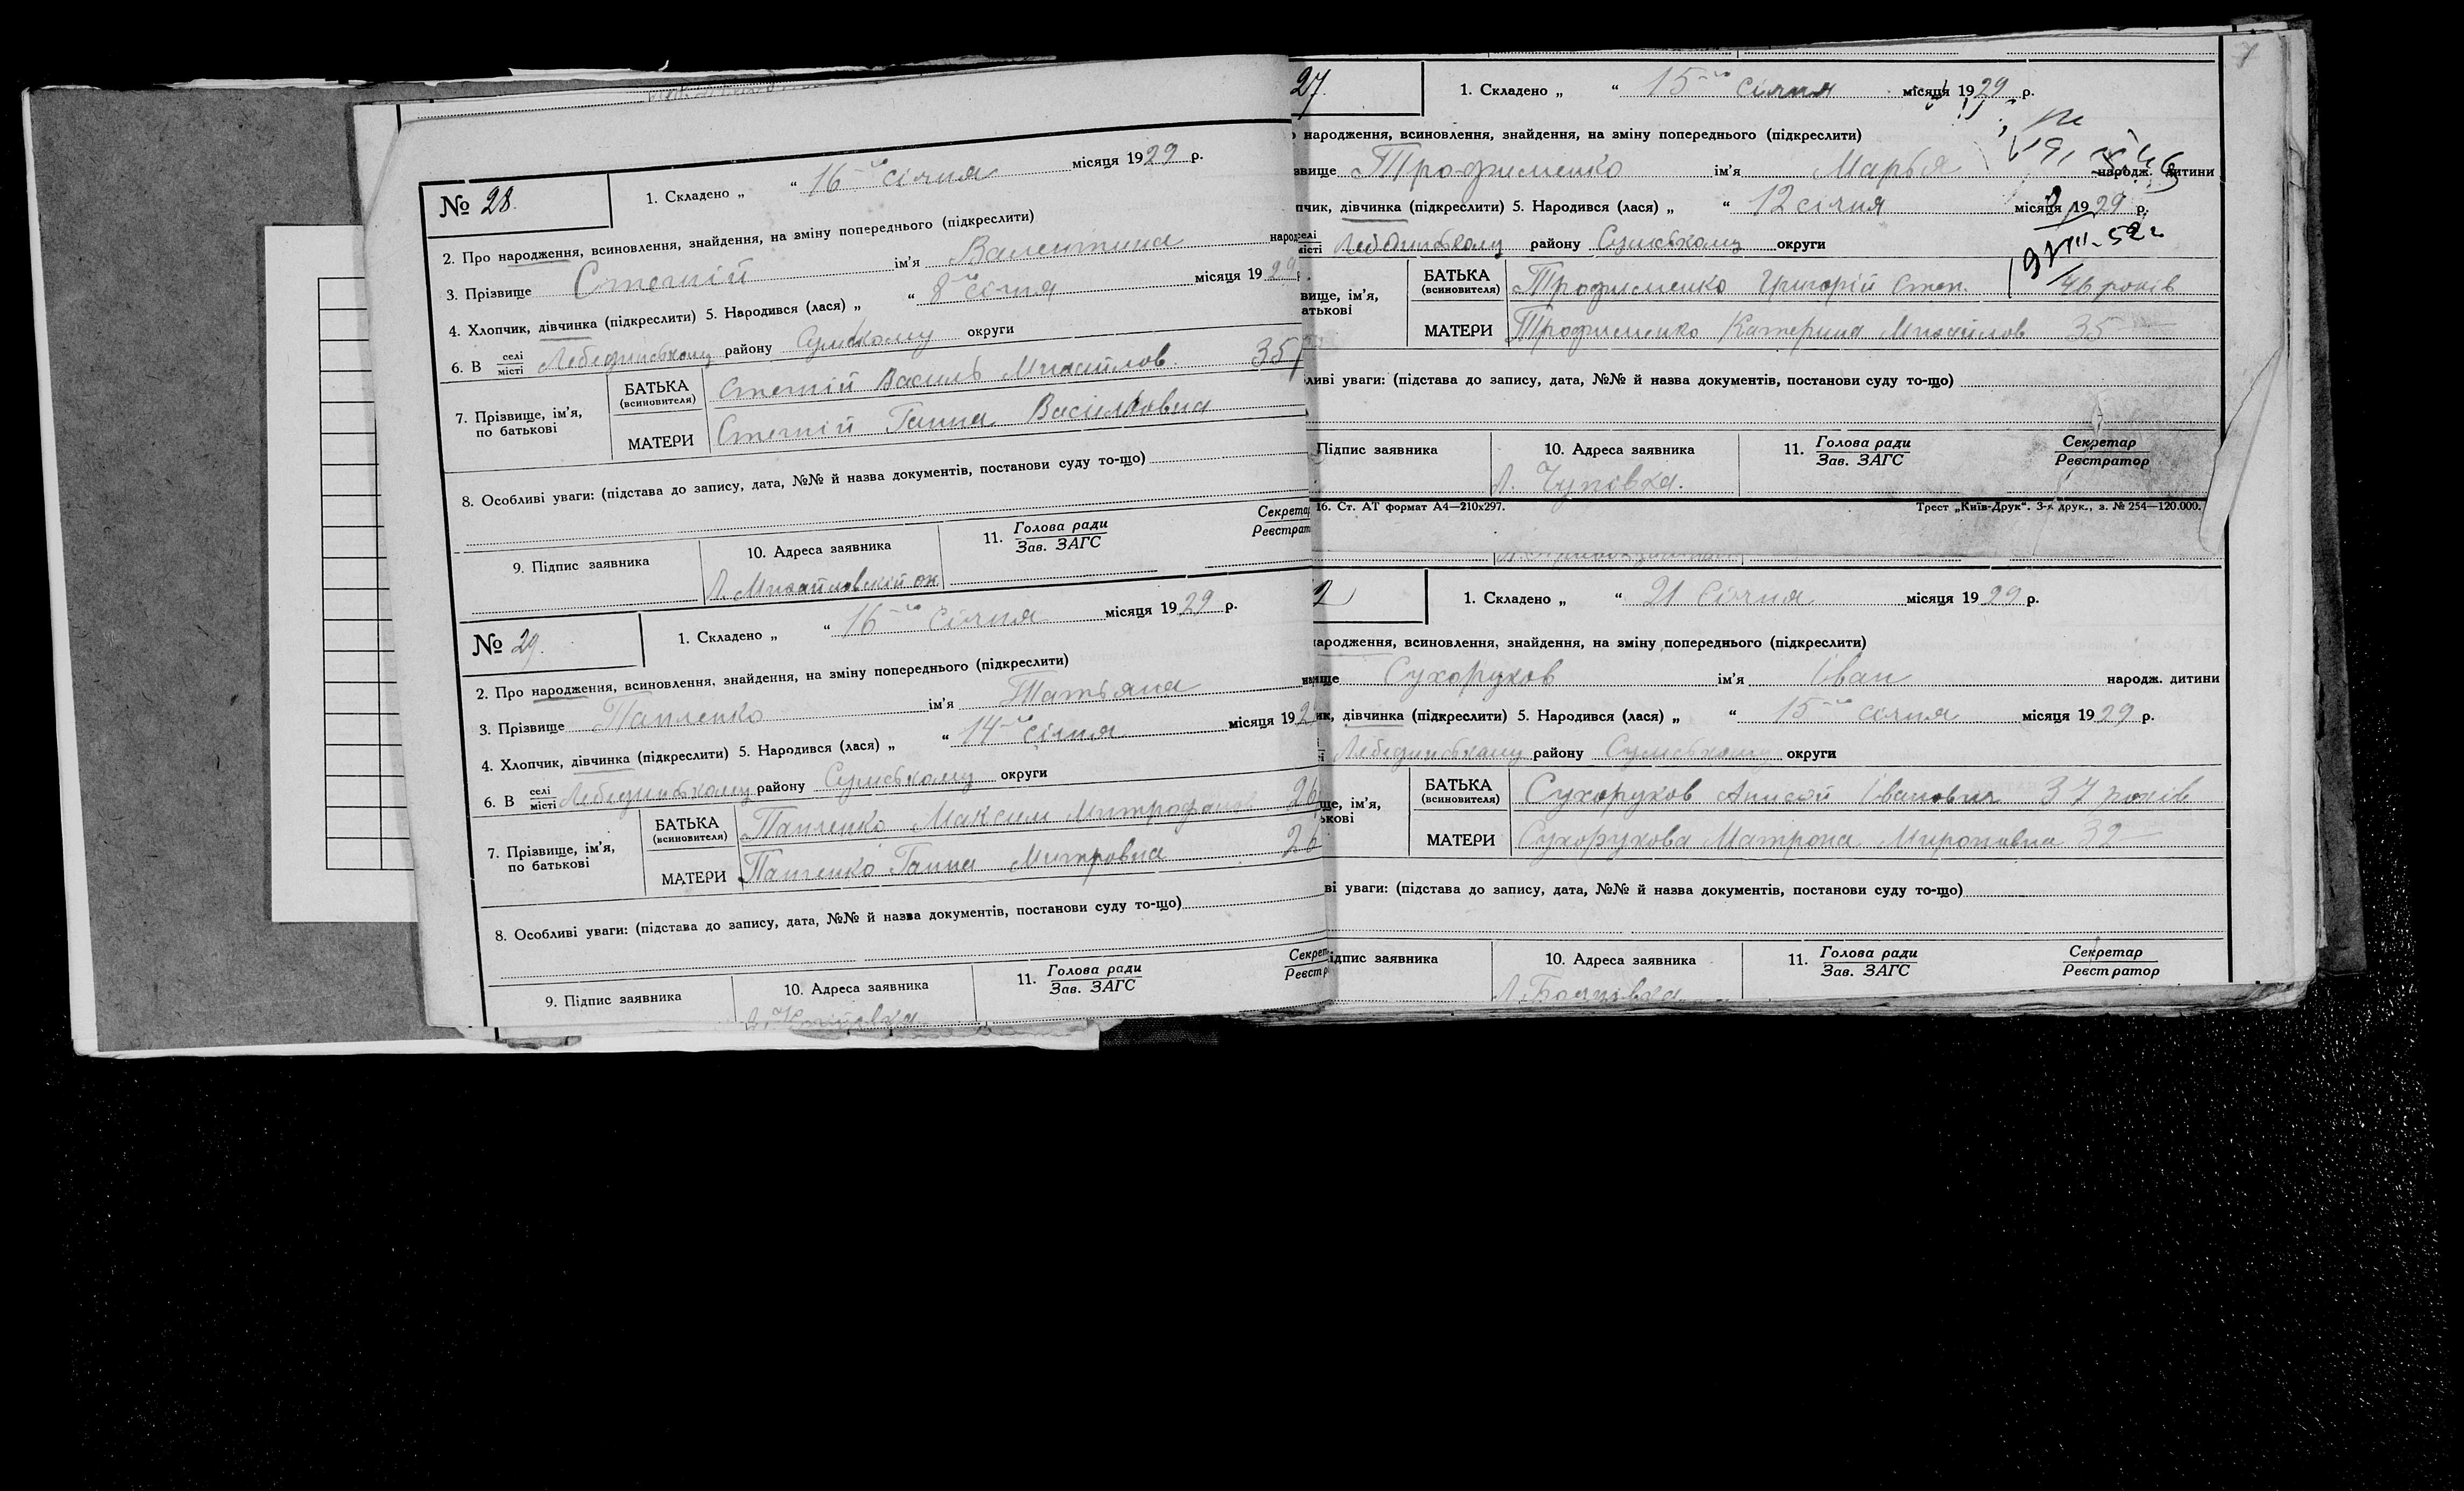 № 28.
1. Складено „ “ 16-го січня місяця 1929 р.
2. Про народження, всиновлення, знайдення, на зміну попереднього (підкреслити)
3. Прізвище Стегній ім'я Валентина народ
4. Хлопчик, дівчинка (підкреслити) 5. Народився (лася) „ “ 8го січня місяця 1929
6. В селі місті Лебединському району Сумському округи
7. Прізвище, ім'я, по батькові
БАТЬКА (всиновителя) Стегній Василь Михайлов. 35
МАТЕРИ Стегній Ганна Васильовна
8. Особливі уваги: (підстава до запису, дата, №№ й назва документів, постанови суду то-що)
9. Підпис заявника
10. Адреса заявника
11. Голова ради
Зав. ЗАГС
Секретар
Реєстрат
Л. Михайловскій
№ 29.
1. Складено „ “ 16-го Січня місяця 1929 р.
2. Про народження, всиновлення, знайдення, на зміну попереднього (підкреслити)
3. Прізвище ім'я Татьяна
4. Хлопчик, дівчинка (підкреслити) 5. Народився (лася) „ “ 14-го січня місяця 192
6. В селі місті Лебединському району Сумському округи
7. Прізвище, ім'я, по батькові
БАТЬКА (всиновителя) Максим Митрофанов 26
МАТЕРИ Ганна Митровна 26
8. Особливі уваги: (підстава до запису, дата, №№ й назва документів, постанови суду то-що)
9. Підпис заявника
10. Адреса заявника
11. Голова ради
Зав. ЗАГС
Секрет
Реєстр
27.
1. Складено „ “ 15-го Січня місяця 1929 р.
народження, всиновлення, знайдення, на зміну попереднього (підкреслити)
звище Трофименко ім'я Марья народж. дитини
пчик, дівчинка (підкреслити) 5. Народився (лася) „ “ 12 січня місяця 1929 р.
селі місті Лебединському району Сумському округи
9/VIII-52г
вище, ім'я, атькові
БАТЬКА (всиновителя) Трофименко Григорій Степ. 46 років
МАТЕРИ Трофименко Катерина Михайлов 35
ливі уваги: (підстава до запису, дата, №№ й назва документів, постанови суду то-що)
Підпис заявника
10. Адреса заявника
11. Голова ради
Зав. ЗАГС
Секретар
Реєстратор
Л. Чупівка.
16. Ст. АТ формат А4—210х297.
Трест „Київ-Друк“. 3-я друк., з. № 254—120.000.
2
1. Складено „ “ 21 Січня місяця 1929 р.
народження, всиновлення, знайдення, на зміну попереднього (підкреслити)
Сухоруков ім'я Іван народж. дитини
ик, дівчинка (підкреслити) 5. Народився (лася) „ “ 15-го січня місяця 1929 р.
Лебединському району Сумському округи
ще, ім'я, ькові
БАТЬКА (всиновителя) Сухоруков Іванович 37 років
МАТЕРИ Сухорукова Матрона Мироновна 32
ві уваги: (підстава до запису, дата, №№ й назва документів, постанови суду то-що)
ідпис заявника
10. Адреса заявника
11. Голова ради
Зав. ЗАГС
Секретар
Реєстратор